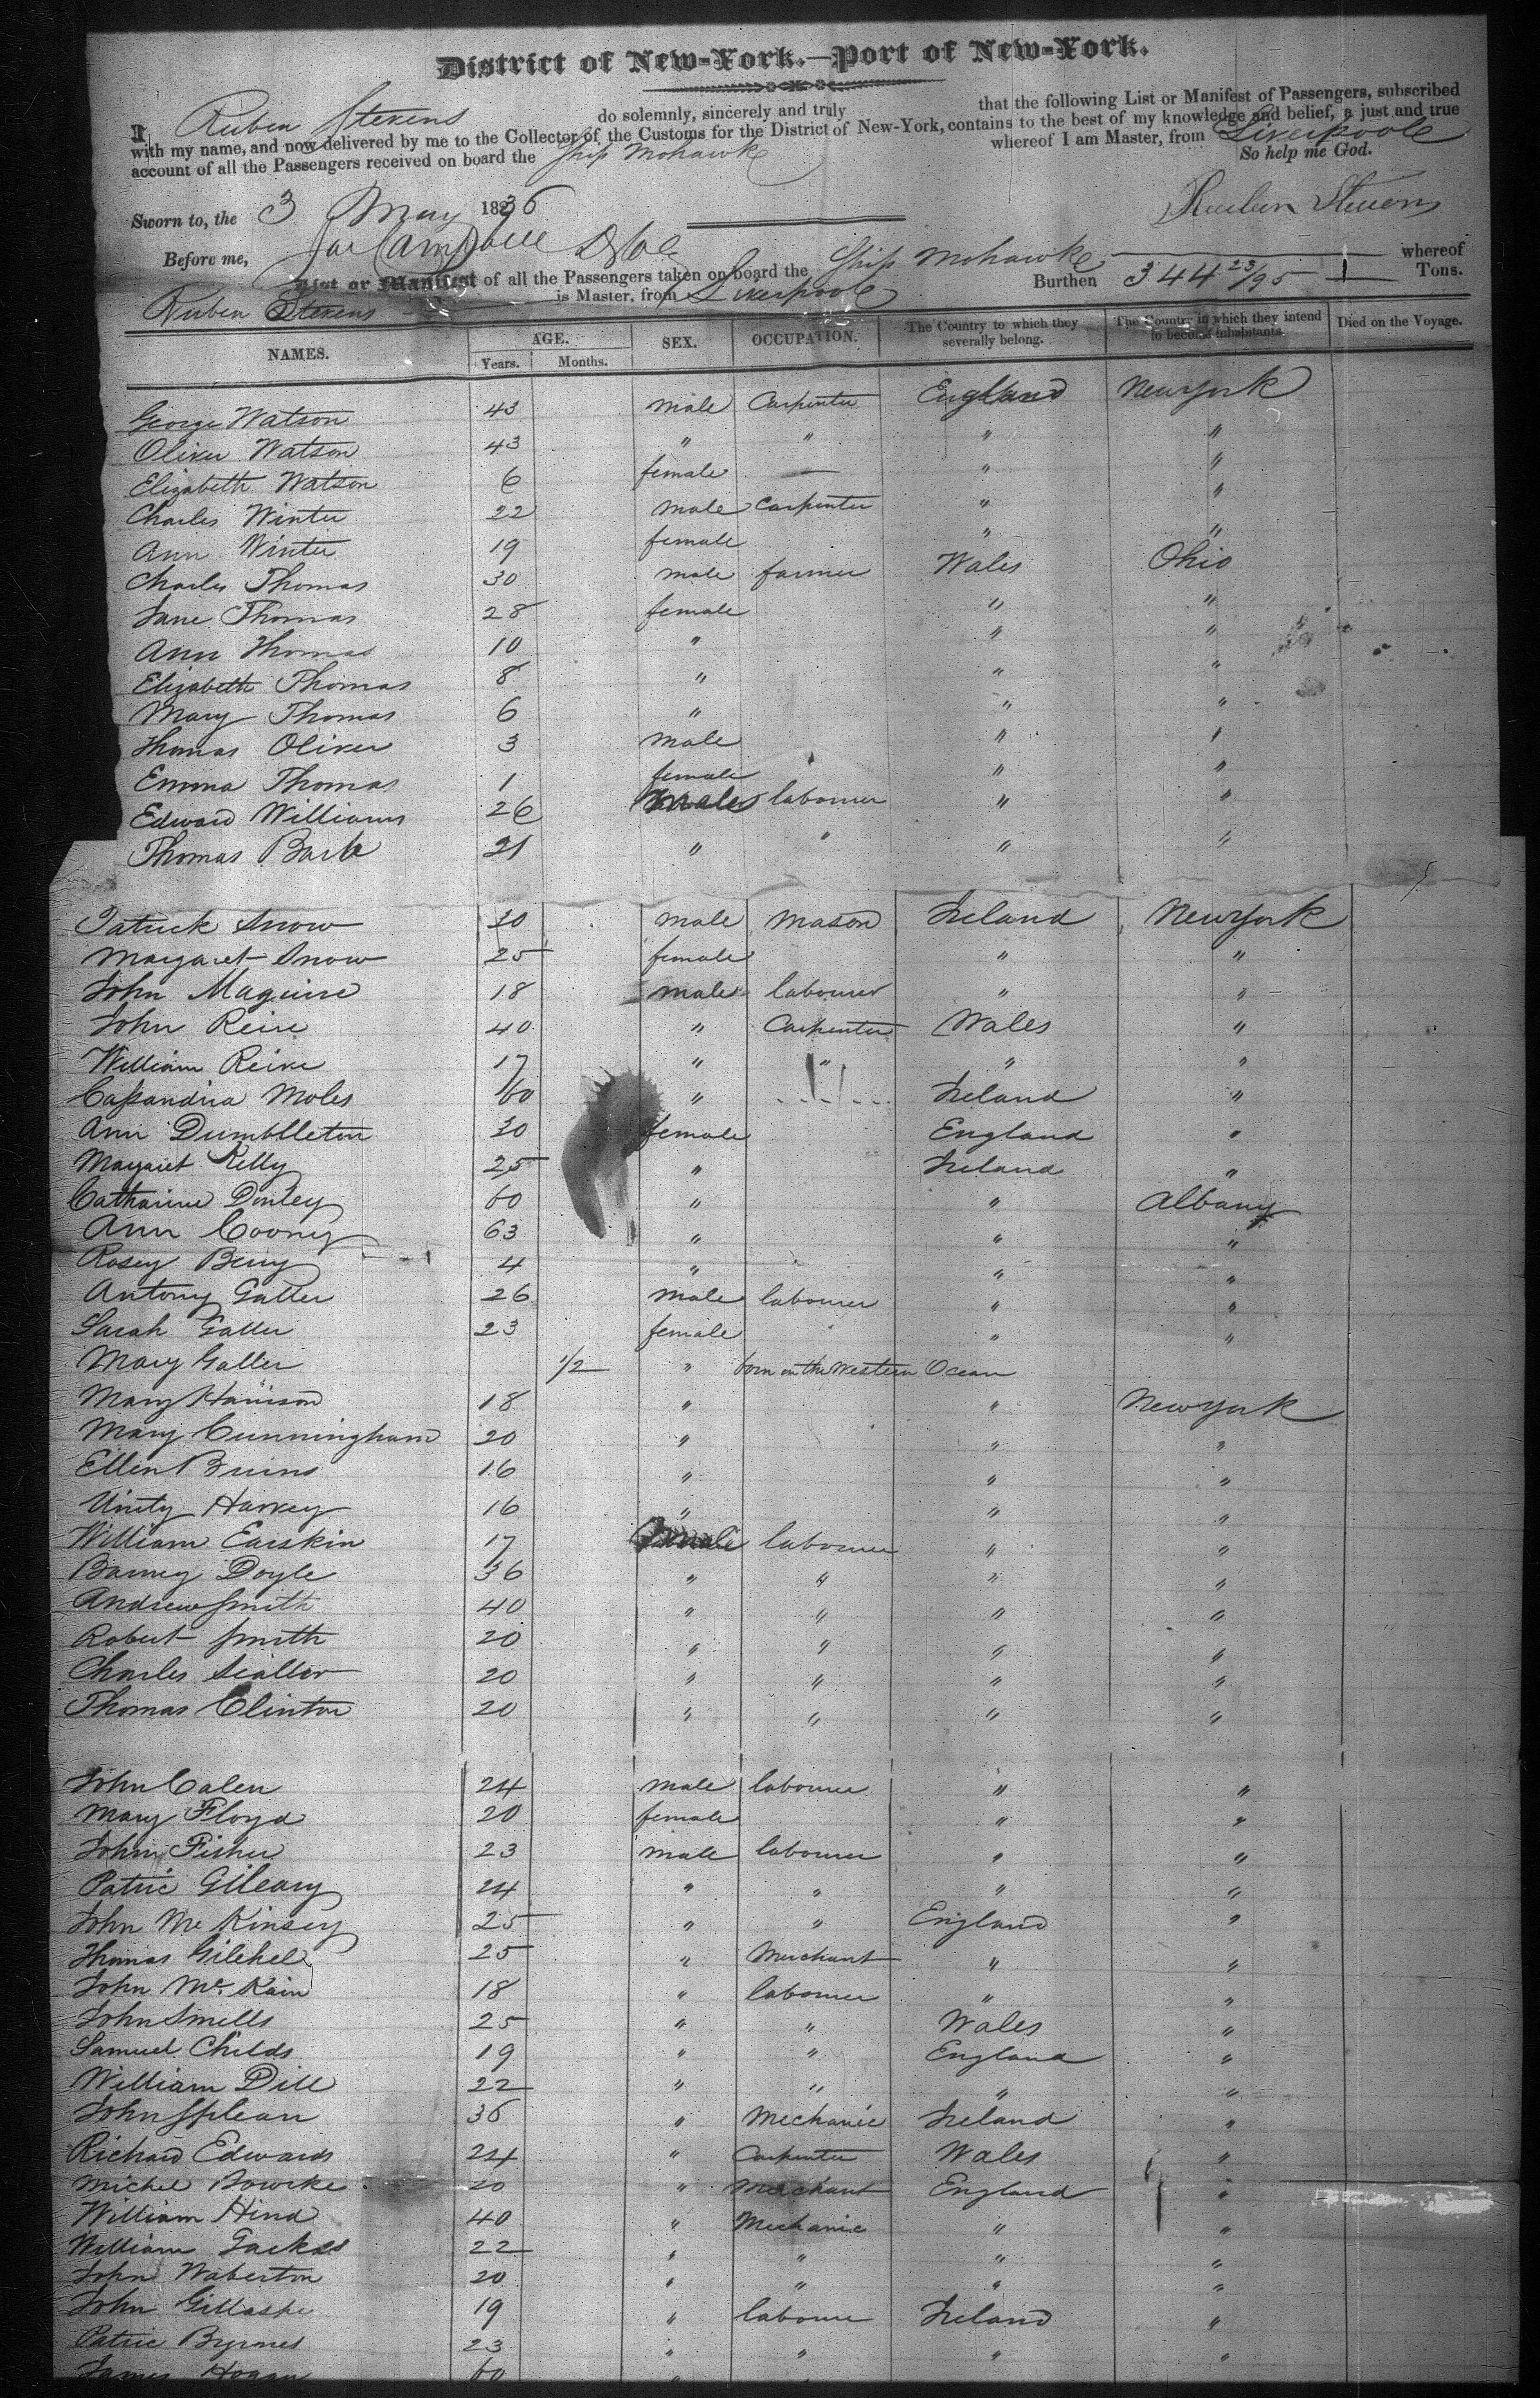 District of New-York.—Port of New-York.
I Ruben Stevens do solemnly, sincerely and truly that the following List or Manifest of Passengers, subscribed
with my name, and now delivered by me to the Collector of the Customs for the District of New-York, contains to the best of my knowledge and belief, a just and true
account of all the Passengers received on board the Ship Mohawk whereof I am Master, from Liverpoole
So help me God.
Sworn to, the 3 May 1836 Reuben Stevens
Before me,
List or Manifest of all the Passengers taken on board the Ship Mohawk whereof
Ruben Stevens is Master, from Liverpoole Burthen 344 23/95 Tons.
NAMES. AGE. Years. Months. SEX. OCCUPATION. The Country to which they severally belong. The Country in which they intend to become inhabitants. Died on the Voyage.
George Watson 43 male Carpenter England Newyork
Oliver Watson 43 " " " "
Elizabeth Watson 6 female — " "
Charles Winter 22 male Carpenter " "
Ann Winter 19 female " "
Charles Thomas 30 male farmer Wales Ohio
Jane Thomas 28 female " "
Ann Thomas 10 " " "
Elizabeth Thomas 8 " " "
Mary Thomas 6 " " "
Thomas Oliver 3 male " "
Emma Thomas 1 female " "
Edward Williams 26 Males labourer " "
Thomas 21 " " " "
Patrick Snow 30 male Mason Ireland Newyork
Margaret Snow 25 female " "
John Maguire 18 male labourer " "
John 40 " Carpenter Wales "
William 17 " " " "
Cassandria Moles 60 " Ireland "
Ann Dumblleton 30 female England "
Margaret Kelly 25 " Ireland "
Catharine Donley 60 " " Albany
Ann Cooney 63 " " "
Rosey Berry 4 " " "
Antony Galler 26 male labourer " "
Sarah Galler 23 female " "
Mary Galler 1/2 " born on the Western Ocean
Mary Harrison 18 " " Newyork
Mary Cunningham 20 " " "
Ellen Burns 16 " " "
Unity Harvey 16 " " "
William Earskin 17 male labourer " "
Barney Doyle 36 " " " "
Andrew Smith 40 " " " "
Robert Smith 20 " " " "
Charles 20 " " " "
Thomas Clinton 20 " " " "
John Calen 24 male labourer " "
Mary Floyd 20 female " "
John Fisher 23 male labourer " "
Patric Gileary 24 " " " "
John McKinsey 25 " " England "
Thomas 25 " Merchant " "
John McKain 18 " labourer " "
John Smells 25 " " Wales "
Samuel Childs 19 " " England "
William Dill 22 " " " "
John 36 " Mechanic Ireland "
Richard Edwards 24 " Carpenter Wales "
Michel Bowrke 20 " Merchant England "
William Hind 40 " Mechanic " "
William 22 " " " "
John Waberton 20 " " " "
John Gillaspe 19 " labourer Ireland "
Patric Byrnes 23 " " " "
James Hogan 60 "